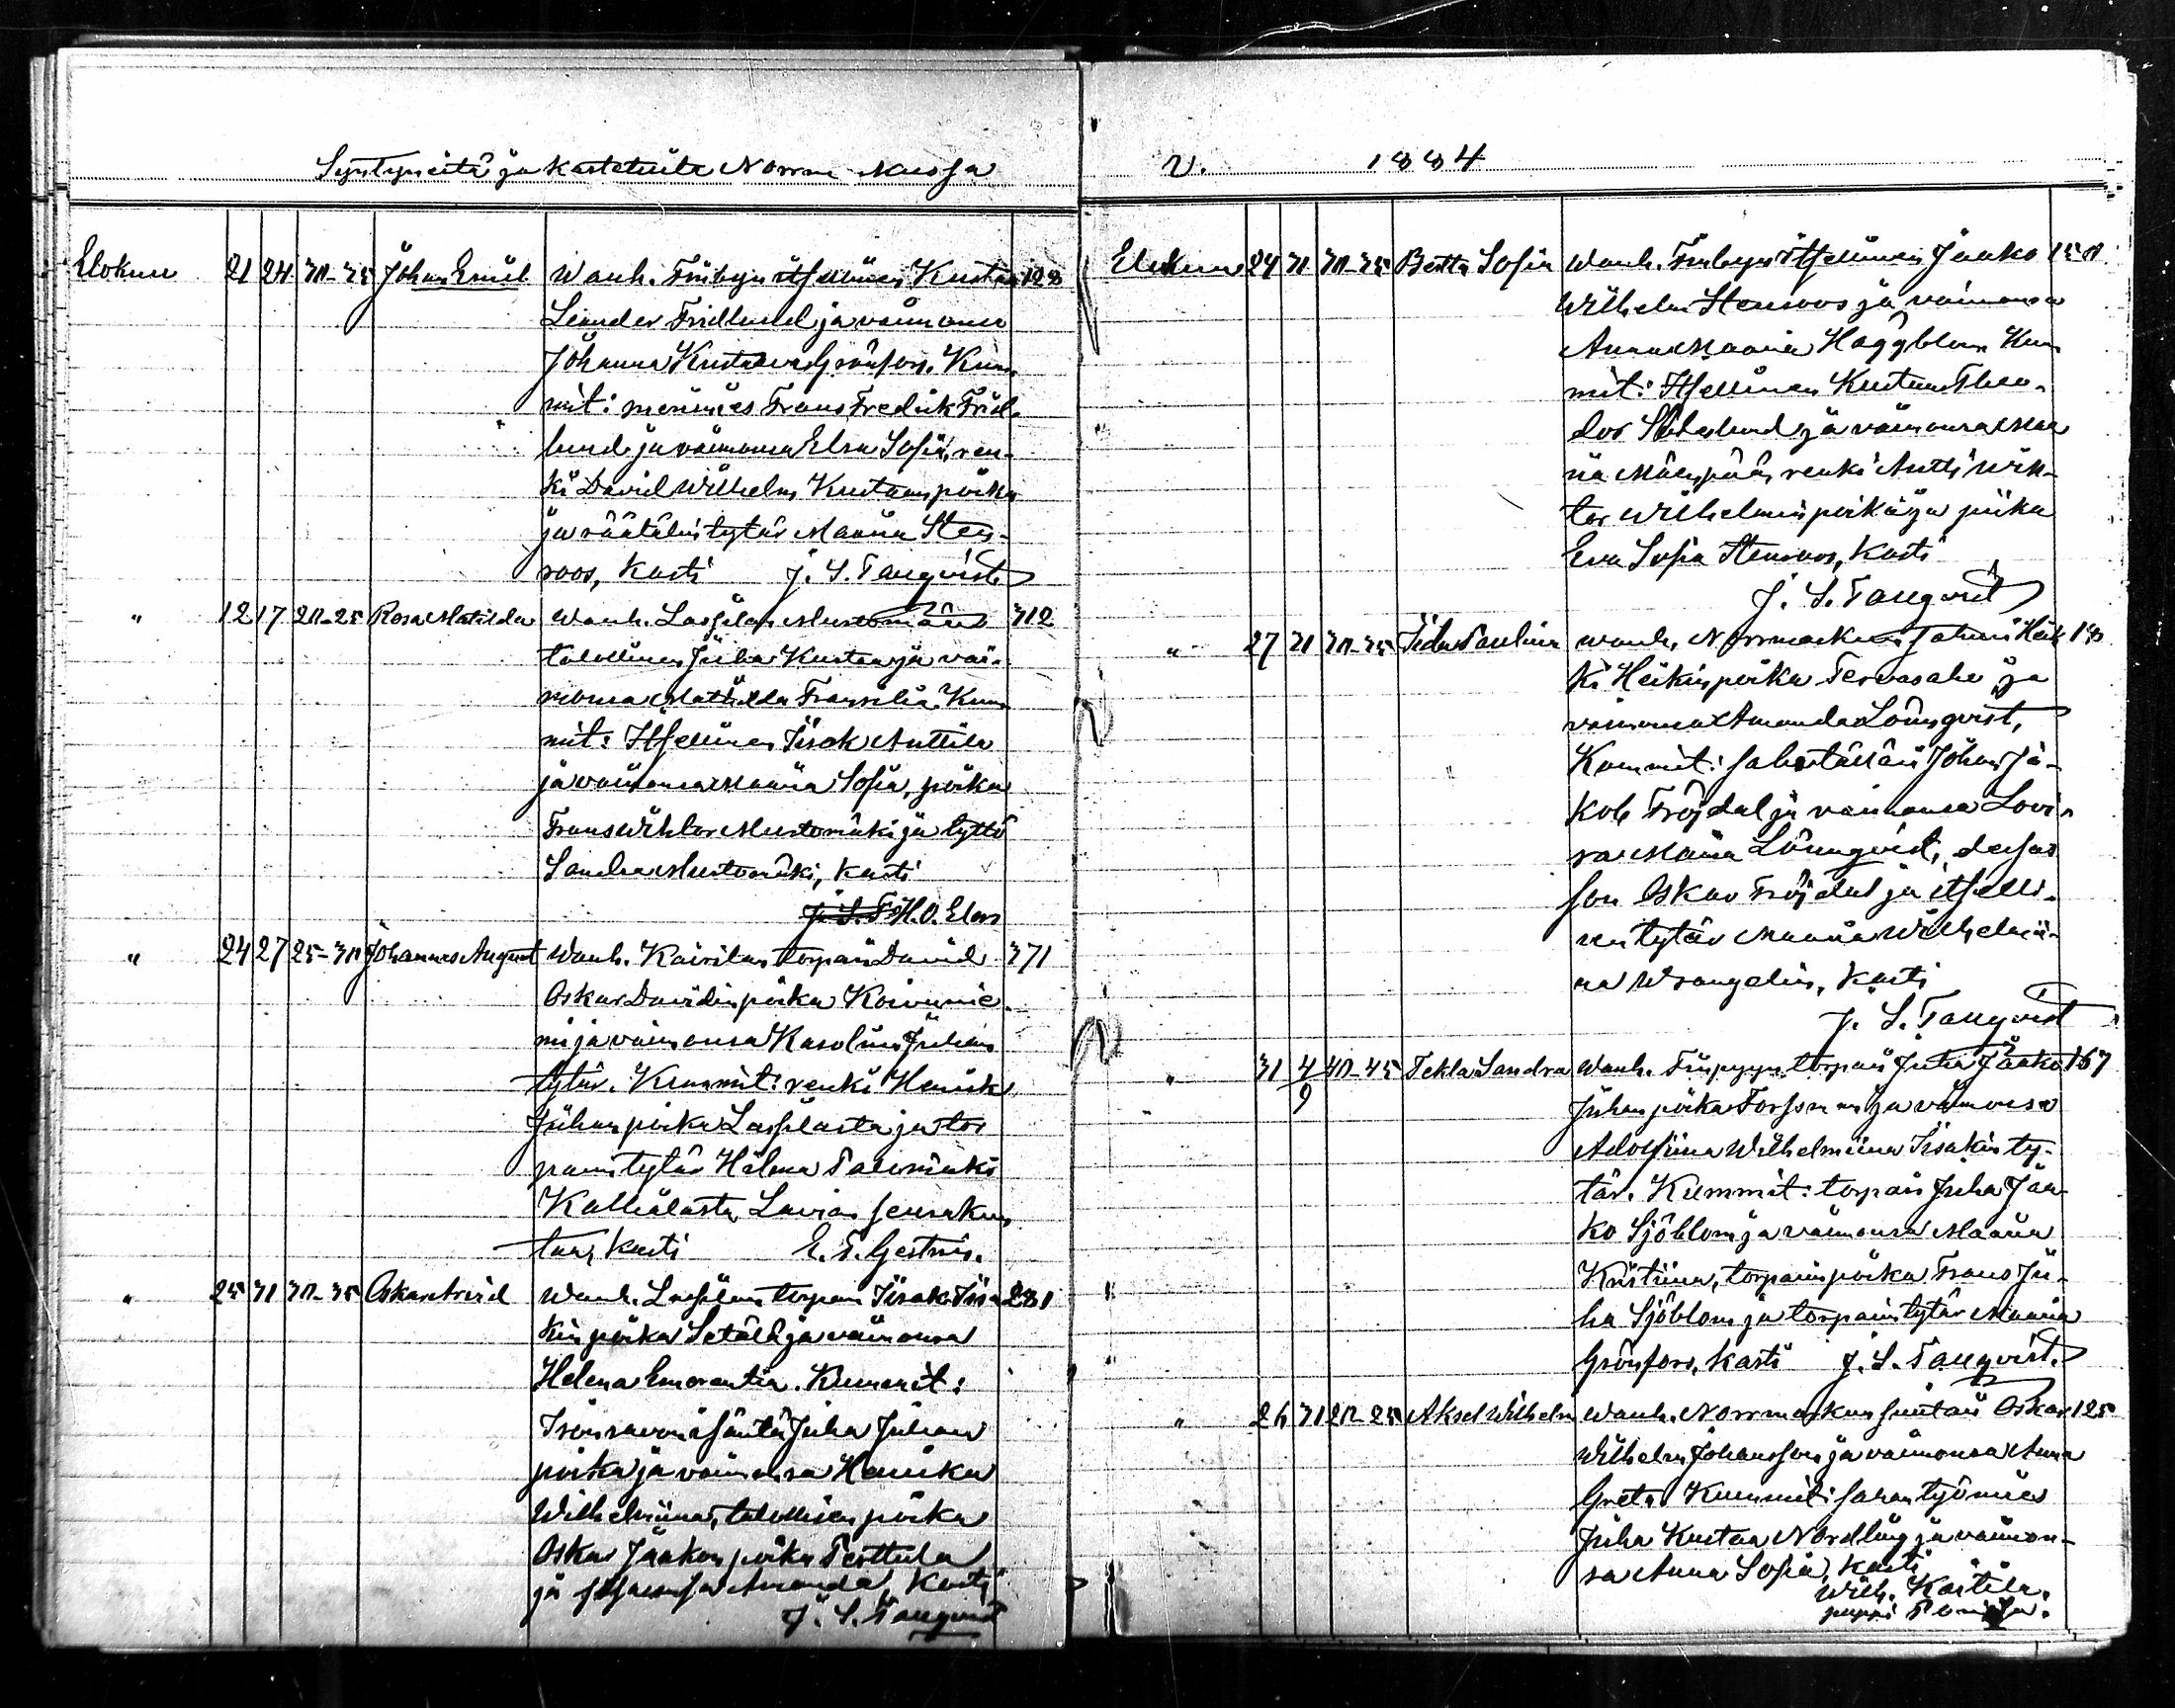 Syntyneitä ja kastetuita Norrmarkussa
Elokuu 21 24 30-35 Johan Emil Wanh. Finbyn itsellinen Kustaa 128
Leander Fridlund ja vaimonsa
Johanna Kustaava Grönfors. Kum-
mit: merimies Frans Fredrik Frid-
lund ja vaimonsa Elsa Sofia, ren-
ki David Wilhelm Kustaanpoika
ja räätälintytär Maria Sten-
roos, kasti J. S. Tanqvist
" 12 17 20-25 Rosa Matilda Wanh. Lassilan Mustomäen 312
talollinen Juha Kustaa ja vai-
monsa Matilda Fransilia. Kum-
mit: Itsellinen Iisak Anttila
ja vaimonsa Maria Sofia, poika
Frans Wihtor Mustomäki ja tyttö
Sandra Mustomäki, kasti
J. S. T H. O. Elers
" 24 27 25-30 Johannes August Wanh. Kairilan torpari David 371
Oskar Davidinpoika Koivunie-
mi ja vaimonsa Karoliina Juhan
tytär. Kummit: renki Henrik
Juhanpoika Lassilasta ja tor
parintytär Hilma Palomäki
Lavian seurakun
taa, kasti
" 25 31 30-35 Oskar Arvid Wanh. Lassilan torpari Iisak Iisa 281
kinpoika Satäli ja vaimonsa
Helena Emerentia. Kummit:
isäntä Juha Juhan
poika ja vaimonsa Henrika
Wilhelmiina, talollisen poika
Oskar Jaakonpoika Perttula
ja Amanda, kasti
J. S. Tanqvist
v. 1884
Elokuu 24 31 30-35 Berta Sofia Wanh. Finbyn itsellinen Jaako 150
Wilhelm Stenroos ja vaimonsa
Anna Maria Häggblom. Kum
mit: Itsellinen Kustaa Theo-
dor Söderlund ja vaimonsa Ma
ria Mäenpää, renki Antti Wih-
tor Wilhelminpoika ja piika
Eva Sofia Stenroos, kasti
J. S. Tanqvist
" 27 31 30-35 Iida Pauliina wanh. Norrmarkun Heik 18
ki Heikinpoika Tervasalo ja
vaimonsa Amanda Lönnqvist,
Kummit: Johan Ja-
kob Fröjdal ja vaimonsa Lovi-
sa Maria Lönnqvist,
Oskar Fröjdal ja itselli-
sen tytär Maria Wilhelmii-
na Wrangelin, kasti
J. S. Tanqvist
" 31 4/9 40-45 Tekla Sandra Wanh. Finpyyn torpari Juha Jaako 167
Juhanpoika Forsman ja vaimonsa
Adolfiina Wilhelmiina Iisakin ty-
tär. Kummit: torpari Juha Jaa
ko Sjöblom ja vaimonsa Maria
Kristiina, torparinpoika Frans Ju-
ha Sjöblom ja torparintytär Maria
Grönfors, kasti J. S. Tanqvist.
" 26 31 20-25 Aksel Wilhelm Wanh. Norrmarkun Oskar 125
Wilhelm Johansson ja vaimonsa Anna
Greta. Kummit: sahan työmies
Juha Kustaa Nordling ja vaimon-
sa Anna Sofia, kasti
Wilh. Kartila.
pappi